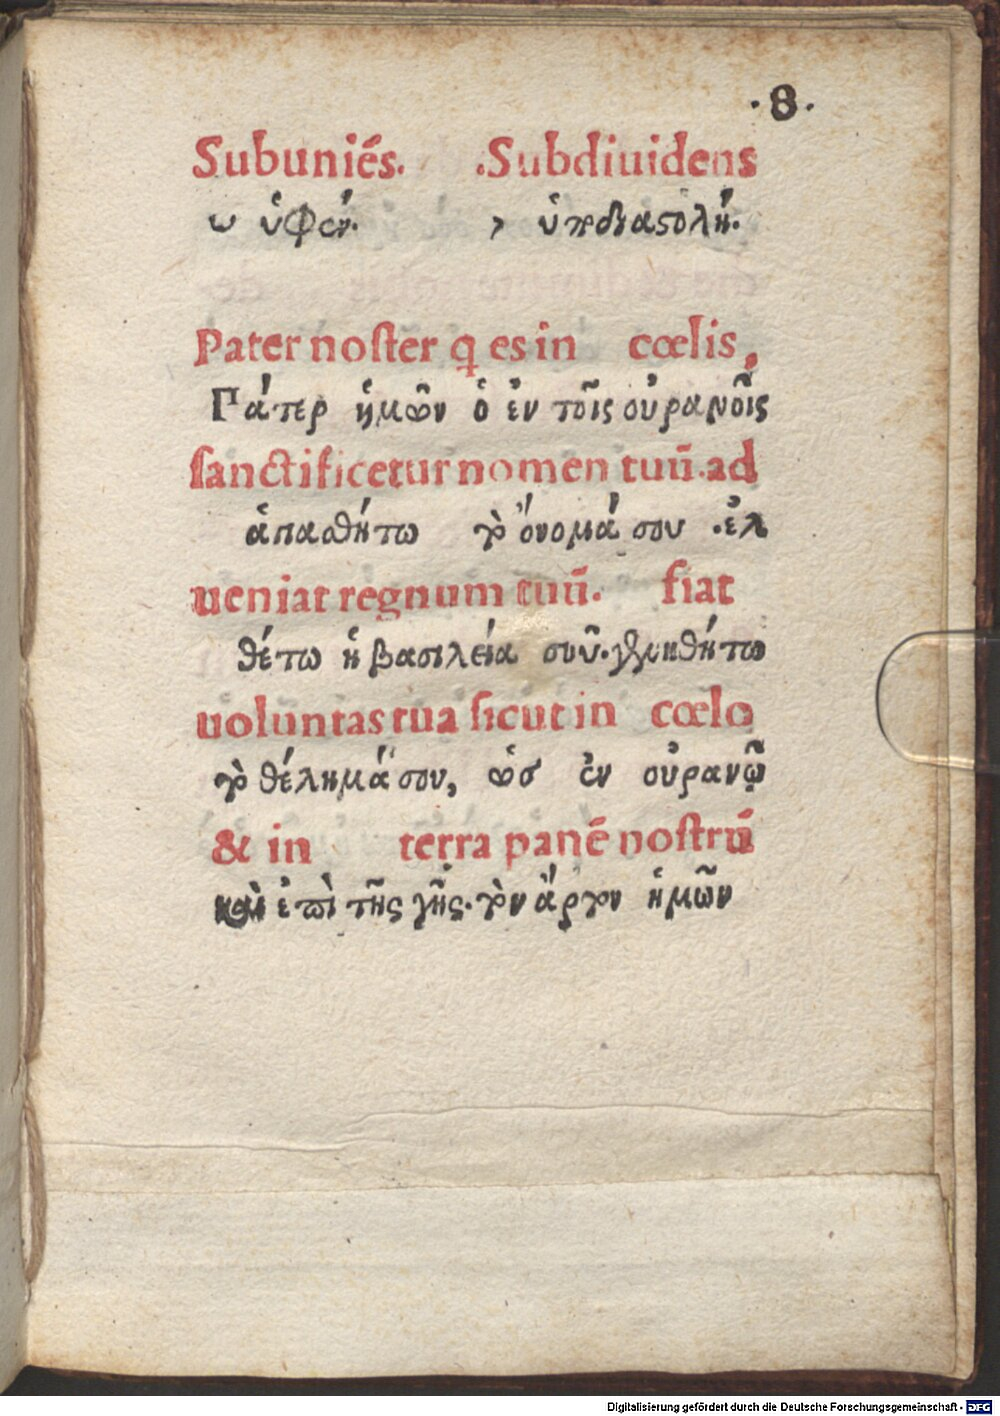 .8.
Subuniēs. .Subdiuidens
‿ ὑφέν. , ὑποδιαστολή.
Pater noster q̄ es in cœlis,
Γάτερ ἡμῶν ὁ ἐν τοῖς οὐρανοῖς
sanctificetur nomen tuū.ad
ἁπασθήτω τὸ ὄνομά σου .ἐλ
ueniat regnum tuū. fiat
θέτω ἡ βασιλεία σοῦ.γενηθήτω
uoluntas tua sicut in cœlo
τὸ θέλημά σου, ὡσ ἐν οὐρανῷ
& in terra panē nostrū
καὶ ἐπὶ τῆς γῆς.τὸν ἄρτον ἡμῶν
Digitalisierung gefördert durch die Deutsche Forschungsgemeinschaft - DFG